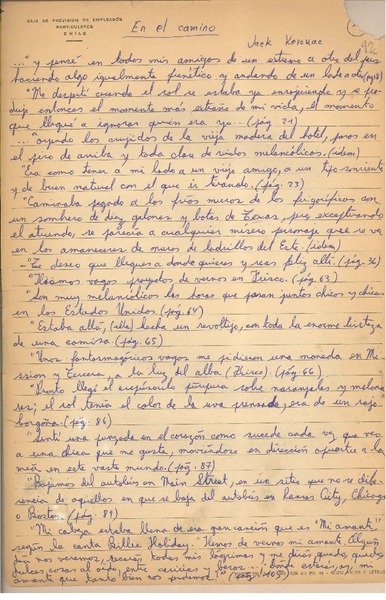 CAJA DE PREVISION DE EMPLEADOS
PARTICULARES
CHILE
En el camino
Jack Kerouac
..."y pensé en todos mis amigos de un extremo a otro del país
haciendo algo igualmente frenético y andando de un lado a otro (pág 18)
"Me desperté cuando el sol se estaba ya enrojeciendo; y se pro-
dujo entonces el momento más extraño de mi vida, el momento
que llegué a ignorar quién era yo... (pág 21)
..."oyendo los crujidos de la vieja madera del hotel, pasos en
el piso de arriba y toda clase de ruidos melancólicos. (idem)
"Era como tener a mi lado a un viejo amigo, a un tipo sonriente
y de buen natural con el que ir tirando. (pág. 23)
"Caminaba pegado a los fríos muros de los frigoríficos con
un sombrero de diez galones y botas de Texas, pero exceptuando
el atuendo, se parecía a cualquier mísero personaje que se ve
en los amaneceres de muros de ladrillos del Este. (idem)
- Te deseo que llegues a donde quieres y seas feliz allí. (pág. 36)
"Hicimos vagos proyectos de vernos en Frisco. (pág. 63)
"Son muy melancólicas las horas que pasan juntos chicos y chicas
en los Estados Unidos. (pág. 64)
"Estaba allí, (ella) hecha un revoltijo, con toda la enorme tristeza
de una camisa (pág. 65)
"Unos fantasmagóricos vagos me pidieron una moneda en Mi-
ssion y Tercera, a la luz del alba (Frisco). (pág. 66)
"Pronto llegó el crepúsculo púrpura sobre naranjales y melona-
res; el sol tenía el color de la uva prensada, era de un rojo
borgoña. (pág. 86)
"Sentí una punzada en el corazón como sucede cada vez que veo
a una chica que me gusta, moviéndose en dirección opuesta a la
mía en este vasto mundo. (pág. 87)
"Bajamos del autobús en Main Street, en un sitio que no se dife-
rencia de aquellos en que se baja del autobús en Kansas City, Chicago
o Boston. (pág. 89)
"Mi cabeza estaba llena de esa gran canción que es "Mi amante"
según la canta Billie Holiday. "Hemos de vernos mi amante. Algún
día nos veremos, secarás todas mis lágrimas y me dirás quedo, quedo,
dulces cosas al oído, entre caricias y besos... ¡dónde estarás, ay, mi
amante que tanto bien nos perdemos!" (pág. 105)